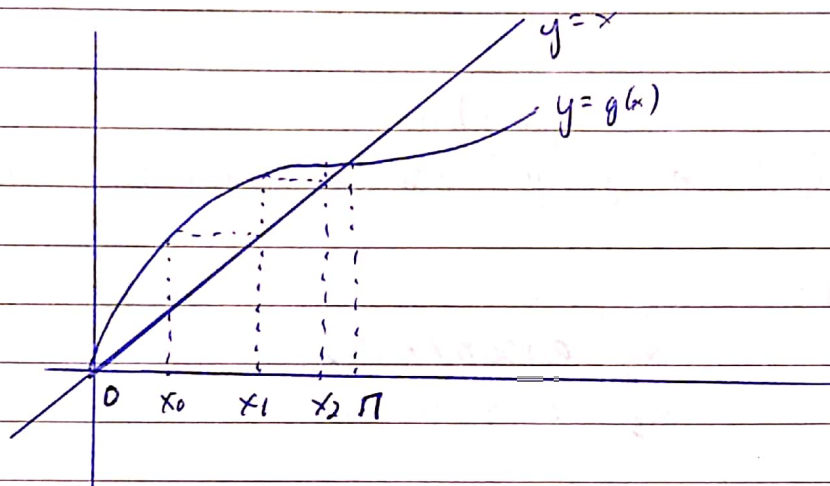 y = x
y = g(x)
0 x₀ x₁ x₂ π